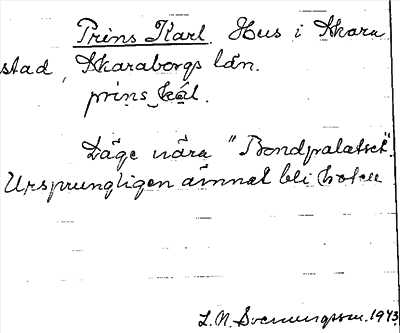 Prins Karl. Hus i Skara
stad, Skaraborgs län.
prins kål.
Läge nära "Bondpalatset".
Ursprungligen ämnat bli hotell
L. N. Svenungsson. 1943